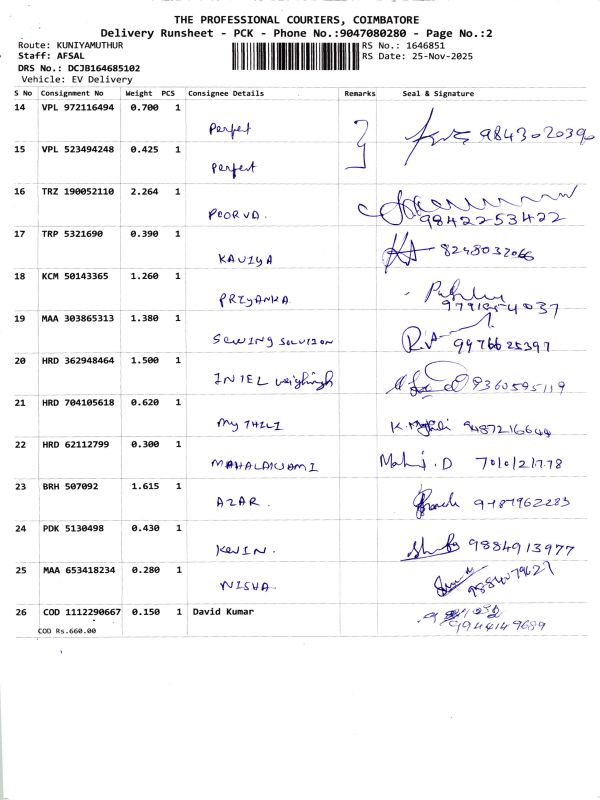 THE PROFESSIONAL COURIERS, COIMBATORE
Delivery Runsheet - PCK - Phone No.:9047080280 - Page No.:2
Route: KUNIYAMUTHUR RS No.: 1646851
Staff: AFSAL RS Date: 25-Nov-2025
DRS No.: DCJB164685102
Vehicle: EV Delivery
S No Consignment No Weight PCS Consignee Details Remarks Seal & Signature
14 VPL 972116494 0.700 1
Perfet 9843020390
15 VPL 523494248 0.425 1
Perfect
16 TRZ 190052110 2.264 1
POORVA. 9842253422
17 TRP 5321690 0.390 1
KAVIYA 8248032066
18 KCM 50143365 1.260 1
PRIYANKA
19 MAA 303865313 1.380 1
SEWING SOLUTION 9976625397
20 HRD 362948464 1.500 1
INTEL weighingh 9360595119
21 HRD 704105618 0.620 1
MYTHILI K. Mythili 9487216644
22 HRD 62112799 0.300 1
MAHALAKSHMI . D 7010121778
23 BRH 507092 1.615 1
AZAR. 9487962283
24 PDK 5130498 0.430 1
KEVIN. 9884913977
25 MAA 653418234 0.280 1
NISHA. 9884079627
26 COD 1112290667 0.150 1 David Kumar
COD Rs.660.00 9944149689